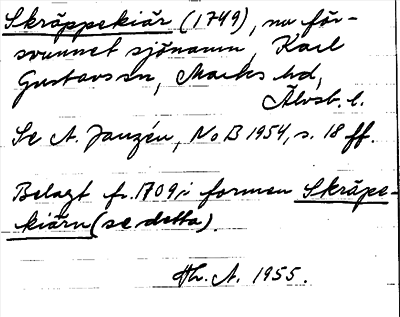 Skräppekiär (1749), nu för-
svunnet sjönamn, Karl
Gustavs sn, Marks hd,
Älvsb. l.
Se A. Janzén, NoB 1954, s. 18 ff.
Belagt fr. 1709 i formen Skräpe-
kiärn (se detta).
Hr. A. 1955.